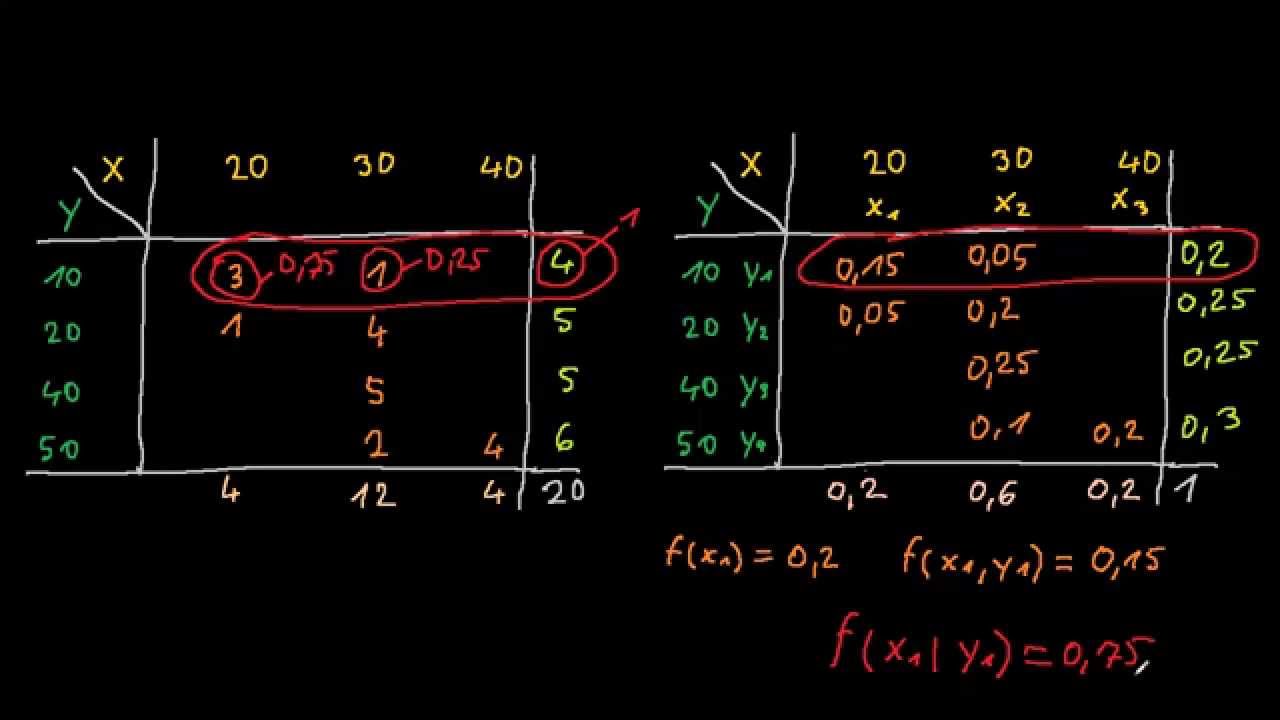 X 20 30 40
Y
10 3 0,75 1 0,25 4 1
20 1 4 5
40 5 5
50 2 4 6
4 12 4 20
X 20 30 40
Y x₁ x₂ x₃
10 y₁ 0,15 0,05 0,2
20 y₂ 0,05 0,2 0,25
40 y₃ 0,25 0,25
50 y₄ 0,1 0,2 0,3
0,2 0,6 0,2 1
f(x₁) = 0,2 f(x₁,y₁) = 0,15
f(x₁|y₁) = 0,75